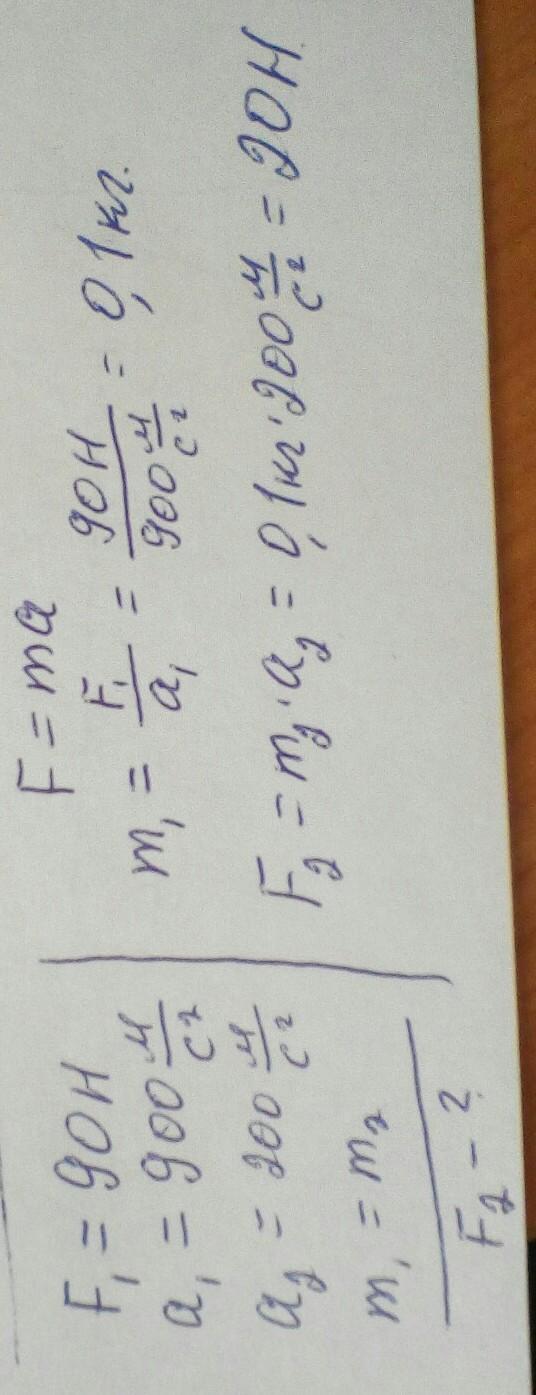 F₁ = 90Н
a₁ = 900 м/с²
a₂ = 200 м/с²
m₁ = m₂
F₂ - ?
F = ma
m₁ = F₁/a₁ = 90Н/900 м/с² = 0,1кг.
F₂ = m₂·a₂ = 0,1кг·200 м/с² = 20Н.